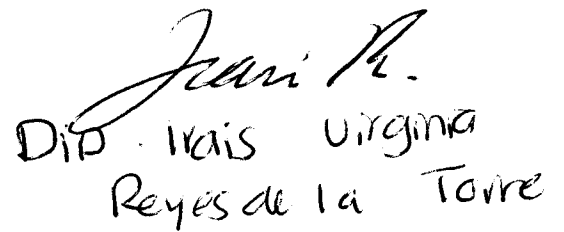 Irais R.
Dip. Irais Virginia
Reyes de la Torre